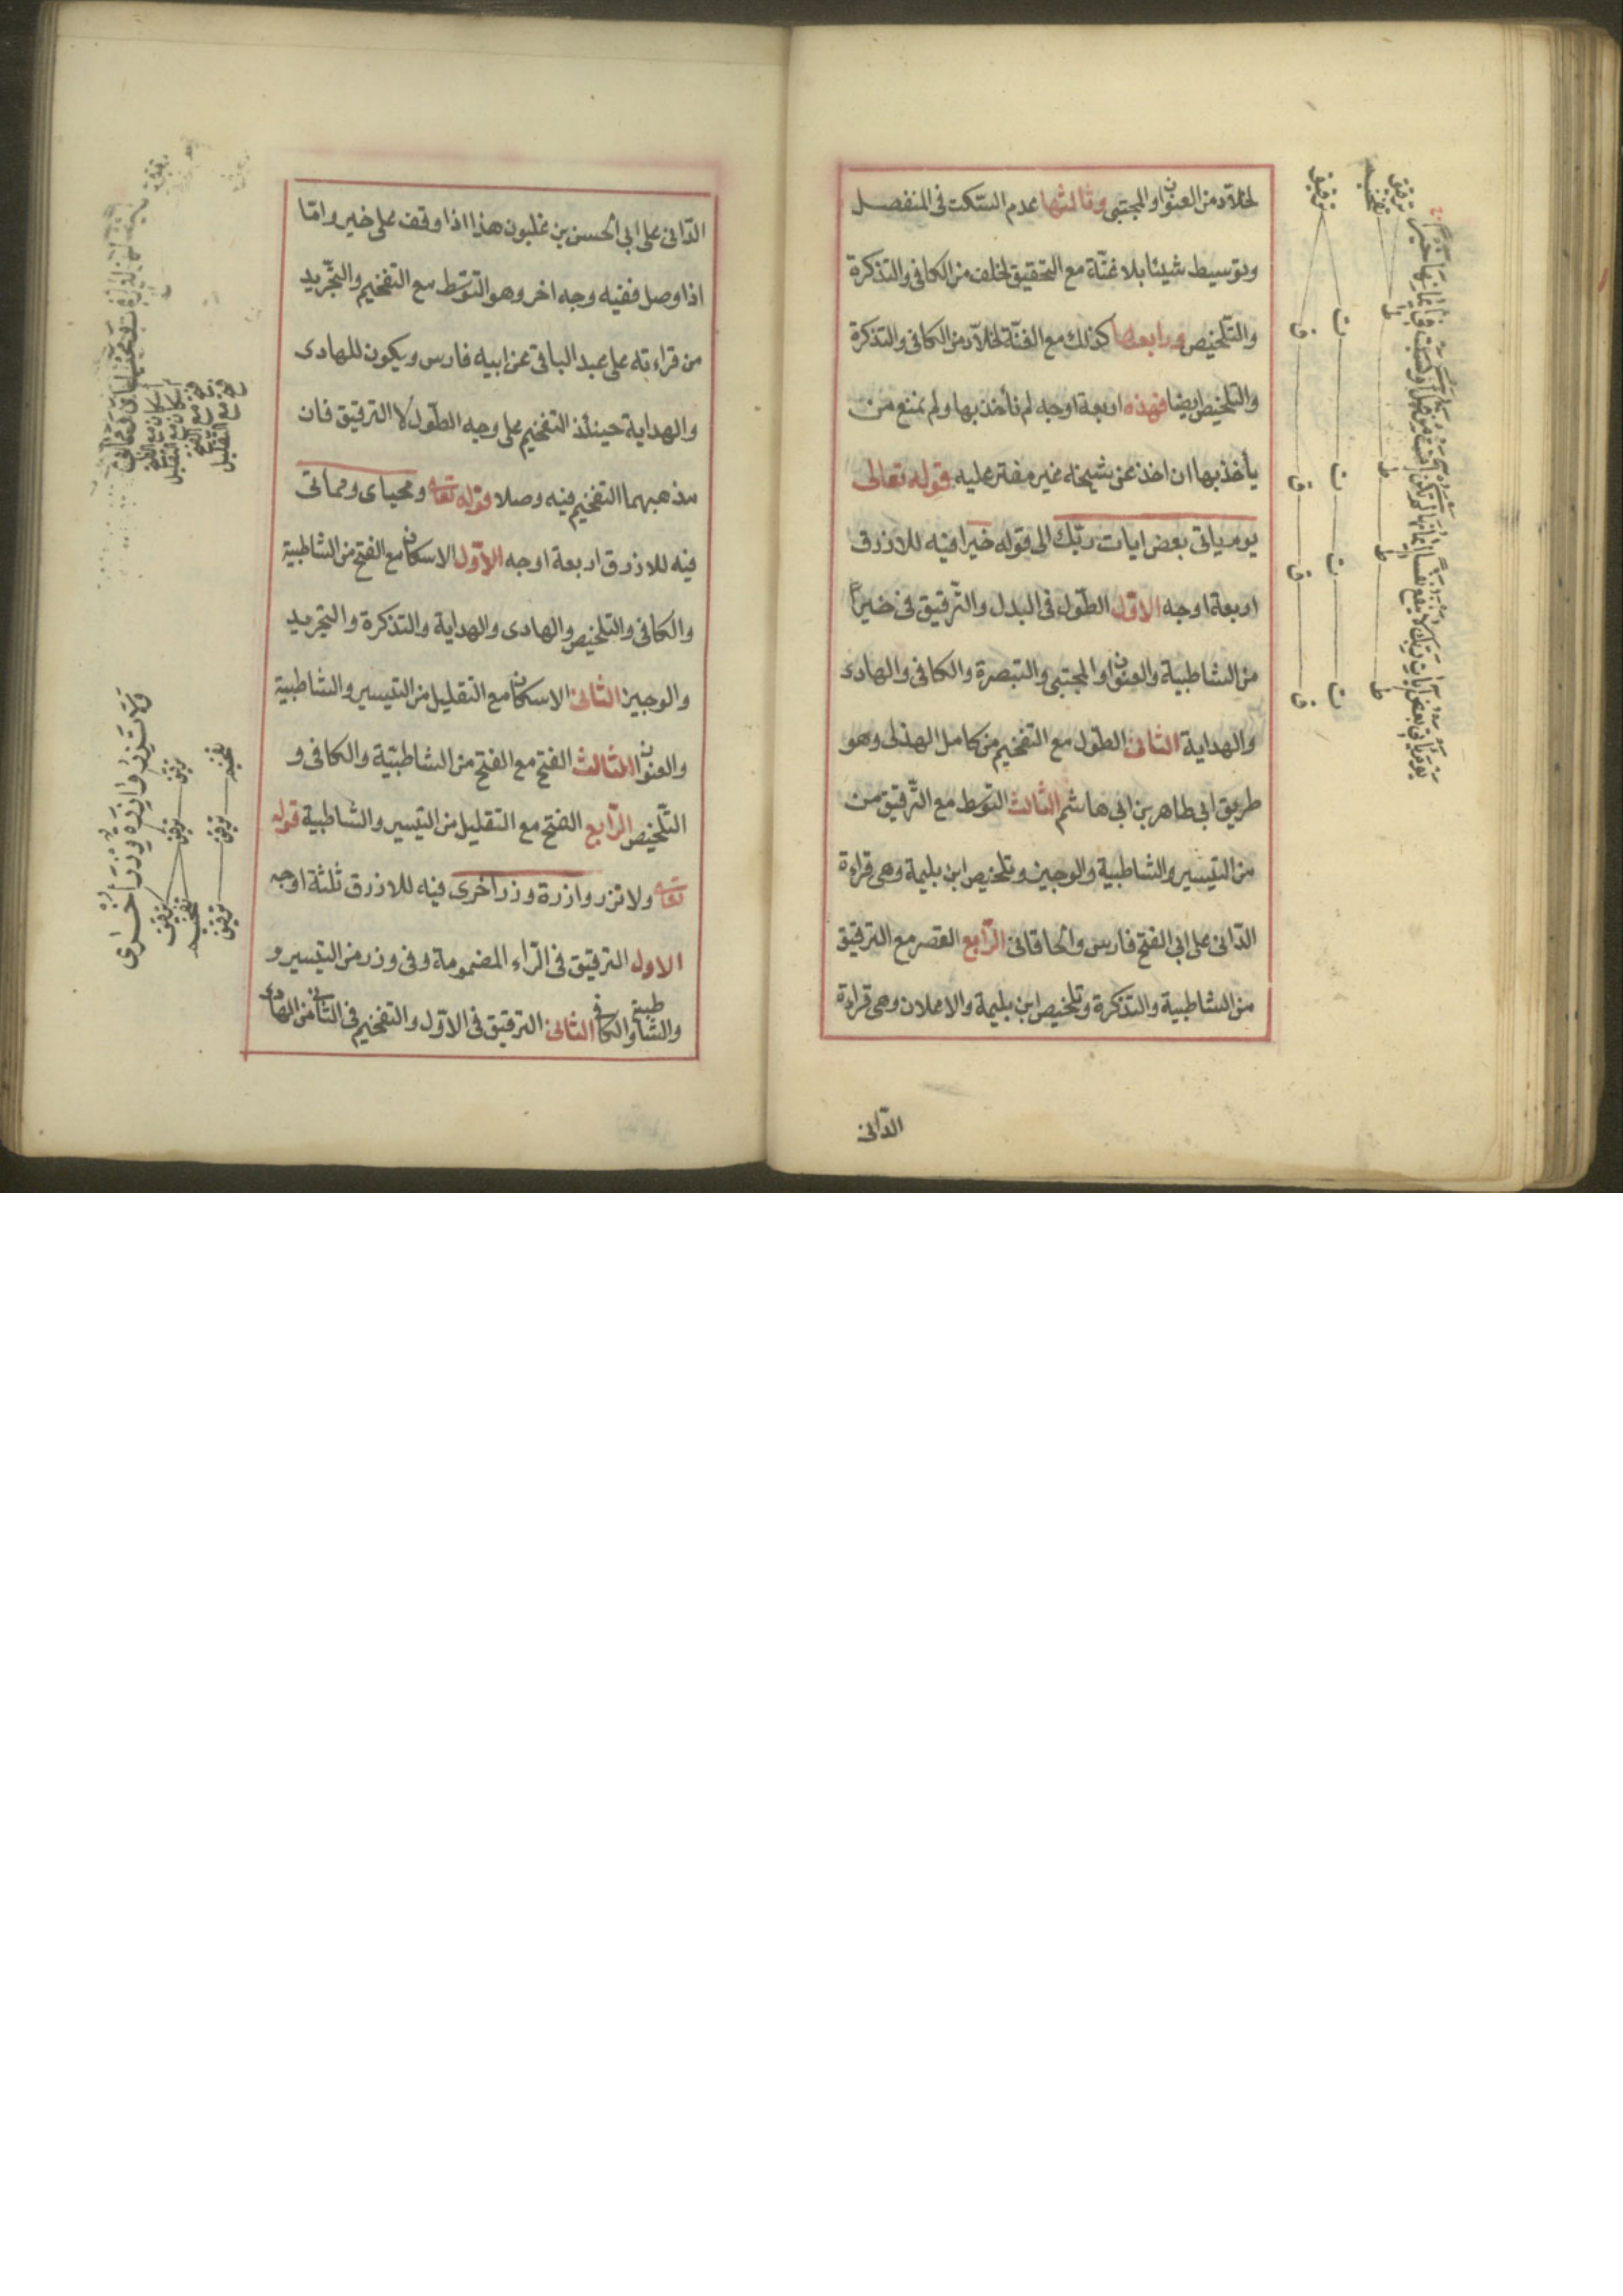 لخلاد من العنوان والمجتبى وثالثها عدم السكت فى المنفصل
وتوسيط شيئا بلا غنّة مع التحقيق لخلف من الكافى والتذكرة
والتلخيص ورابعها كذلك مع الغنّة لخلاد من الكافى والتذكرة
والتلخيص ايضا فهذه اربعة اوجه لم نأخذ بها ولم نمنع من
يأخذ بها ان اخذ عن شيخه غير مفتر عليه قوله تعالى
يوم ياتى بعض ايات ربّك الى قوله خيرا فيه للازرق
اربعة اوجه الاوّل الطّول فى البدل والتّرقيق فى خيراً
من الشاطبية والعنوان والمجتبى والتبصرة والكافى والهادى
والهداية الثانى الطول مع التفخيم من كامل الهذلى وهو
طريق ابى طاهر بن ابى هاشم الثالث التوسط مع التّرقيق من
من التيسير والشاطبية والوجيز وتلخيص ابن بليمة وهى قراءة
الدّانى على ابى الفتح فارس والخاقانى الرّابع القصر مع الترقيق
من الشاطبية والتذكرة وتلخيص ابن بليمة والاعلان وهى قراءة
الدّانى
يوم ياتى بعض آيات ربك لا ينفع نفسا ايمانها لم تكن آمنت من قبل او كسبت فى ايمانها خيرا
ترقيق
تفخيم
ترقيق
ط
ط
ط
ط
ت
ت
ت
ت
ق
ق
ق
ق
الدّانى على ابى الحسن بن غلبون هذا اذا وقف على خير وامّا
اذا وصل ففيه وجه اخر وهو التوسّط مع التفخيم والتجريد
من قراءته على عبد الباقى عن ابيه فارس ويكون للهادى
والهداية حينئذ التفخيم على وجه الطّول لا الترقيق فان
مذهبهما التفخيم فيه وصلا قوله تعالى ومحياى ومماتى
فيه للازرق اربعة اوجه الاوّل الاسكان مع الفتح من الشاطبية
والكافى والتلخيص والهادى والهداية والتذكرة والتجريد
والوجيز الثانى الاسكان مع التقليل من التيسير والشاطبية
والعنوان الثالث الفتح مع الفتح من الشاطبيّة والكافى و
التّلخيص الرّابع الفتح مع التقليل من التيسير والشاطبية قوله
تعالى ولا تزر وازرة وزر اخرى فيه للازرق ثلثة اوجه
الاول الترقيق فى الرّاء المضمومة وفى وزر من التيسير و
والشاطبية والكافى الثانى الترقيق فى الاوّل والتفخيم فى الثانى من الهادى
اسكان مع الفتح
اسكان مع التقليل
فتح مع الفتح
فتح مع التقليل
ولا تزر وازرة وزر أخرى
ترقيق
ترقيق
ترقيق
تفخيم
تفخيم
ترقيق
ترقيق